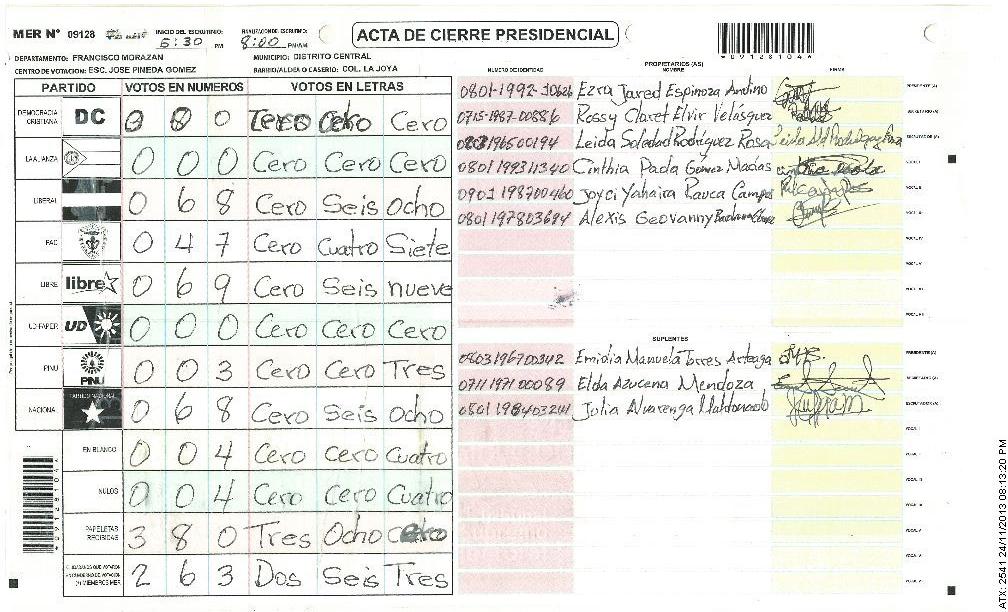 MER Nº 09128 INICIO DEL ESCRUTINIO: 5:30 PM FINALIZACION DE ESCRUTINIO: 8:00 PM/AM
ACTA DE CIERRE PRESIDENCIAL
*09128104*
DEPARTAMENTO: FRANCISCO MORAZAN MUNICIPIO: DISTRITO CENTRAL
CENTRO DE VOTACION: ESC. JOSE PINEDA GOMEZ BARRIO/ALDEA O CASERIO: COL. LA JOYA
PARTIDO VOTOS EN NUMEROS VOTOS EN LETRAS
DEMOCRACIA CRISTIANA DC 0 0 0 Cero Cero Cero
LA ALIANZA 0 0 0 Cero Cero Cero
LIBERAL 0 6 8 Cero Seis Ocho
PAC 0 4 7 Cero Cuatro Siete
LIBRE libre 0 6 9 Cero Seis nueve
UD-FAPER UD 0 0 0 Cero Cero Cero
PINU PINU 0 0 3 Cero Cero Tres
NACIONAL PARTIDO NACIONAL 0 6 8 Cero Seis Ocho
EN BLANCO 0 0 4 Cero Cero Cuatro
NULOS 0 0 4 Cero Cero Cuatro
PAPELETAS RECIBIDAS 3 8 0 Tres Ocho Cero
CIUDADANOS QUE VOTARON EN CUADERNO DE VOTACION (+) MIEMBROS MER 2 6 3 Dos Seis Tres
PROPIETARIOS (AS)
NUMERO DE IDENTIDAD NOMBRE FIRMA
0801-1992-10626 Ezra Jared Espinoza Andino PRESIDENTE (A)
0715-1987-00886 Rossy Claret Elvir Velásquez SECRETARIO (A)
196500194 Leida Soledad Rodríguez Rosa ESCRUTADOR (A)
0801 1993 11340 Cinthia Paola Gomez Macias VOCAL I
0901 198700460 Joyci Yahaira Pauca Campos VOCAL II
0801 197803694 Alexis Geovanny VOCAL III
VOCAL IV
VOCAL V
SUPLENTES
0803196700342 Emidia Manuela Torres Arteaga PRESIDENTE (A)
0711 1971 00089 Elda Azucena Mendoza SECRETARIO (A)
0801 198403241 Julia Alvarenga Maldonado ESCRUTADOR (A)
VOCAL I
VOCAL II
VOCAL III
VOCAL IV
VOCAL V
*09128104*
ATX: 2541 24/11/2013 08:13:20 PM